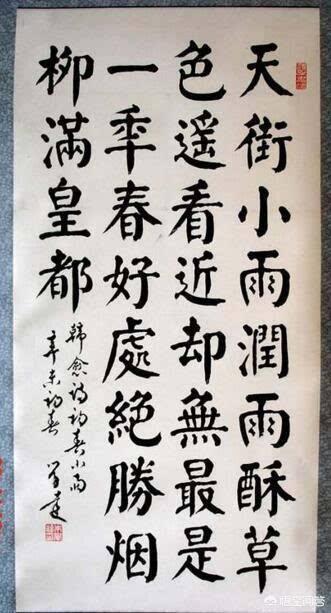 天街小雨潤雨酥草
色遥看近却無最是
一秊春好處絕勝烟
柳滿皇都
韓愈诗初春小雨
辛未初春
悟空问答